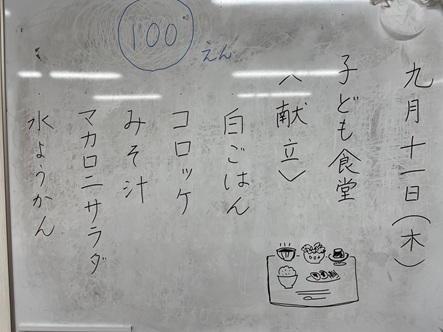 九月十一日(木)
子ども食堂
〈献立〉
白ごはん
コロッケ
みそ汁
マカロニサラダ
水ようかん
100えん